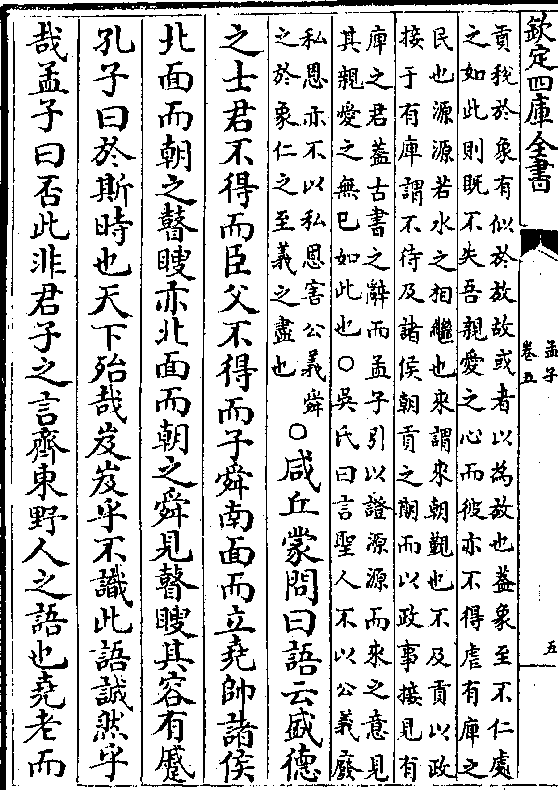 欽定四庫全書
孟子
卷五
五
貢稅於象有似於放故或者以為放也蓋象至不仁處
之如此則既不失吾親愛之心而彼亦不得虐有庳之
民也源源若水之相繼也來謂來朝覲也不及貢以政
接于有庳謂不待及諸侯朝貢之期而以政事接見有
庳之君蓋古書之辭而孟子引以證源源而來之意見
其親愛之無已如此也○吳氏曰言聖人不以公義廢
私恩亦不以私恩害公義舜
之於象仁之至義之盡也
○咸丘蒙問曰語云盛德
之士君不得而臣父不得而子舜南面而立堯帥諸侯
北面而朝之瞽瞍亦北面而朝之舜見瞽瞍其容有蹙
孔子曰於斯時也天下殆哉岌岌乎不識此語誠然乎
哉孟子曰否此非君子之言齊東野人之語也堯老而